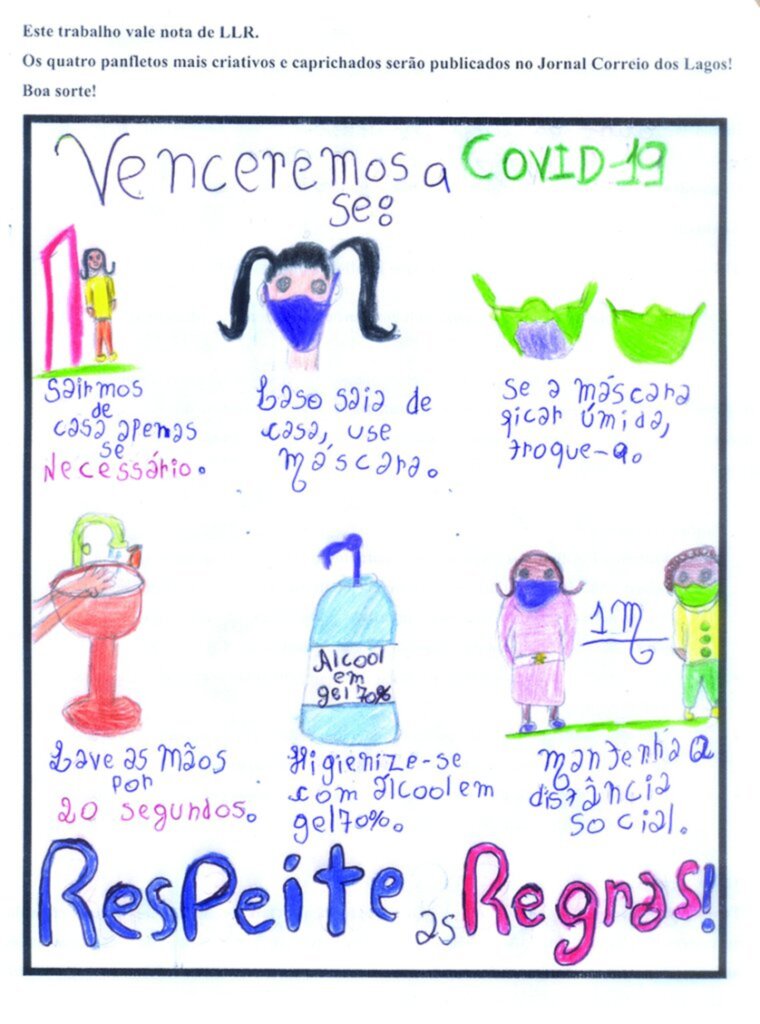 Este trabalho vale nota de LLR.
Os quatro panfletos mais criativos e caprichados serão publicados no Jornal Correio dos Lagos!
Boa sorte!
Venceremos a COVID-19
se:
Sairmos
de
casa apenas
se
Necessário.
Caso saia de
casa, use
máscara.
Se a máscara
ficar úmida,
troque-a.
Alcool
em
gel 70%
1M
Lave as mãos
por
20 segundos.
Higienize-se
com álcool em
gel 70%.
Mantenha a
distância
social.
Respeite as Regras!